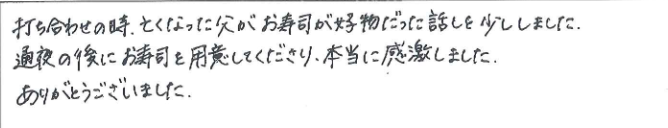 打ち合わせの時、とくなった父がお寿司が好物だった話しを少ししました.
通夜の後にお寿司を用意してくださり、本当に感激しました.
ありがとうございました.